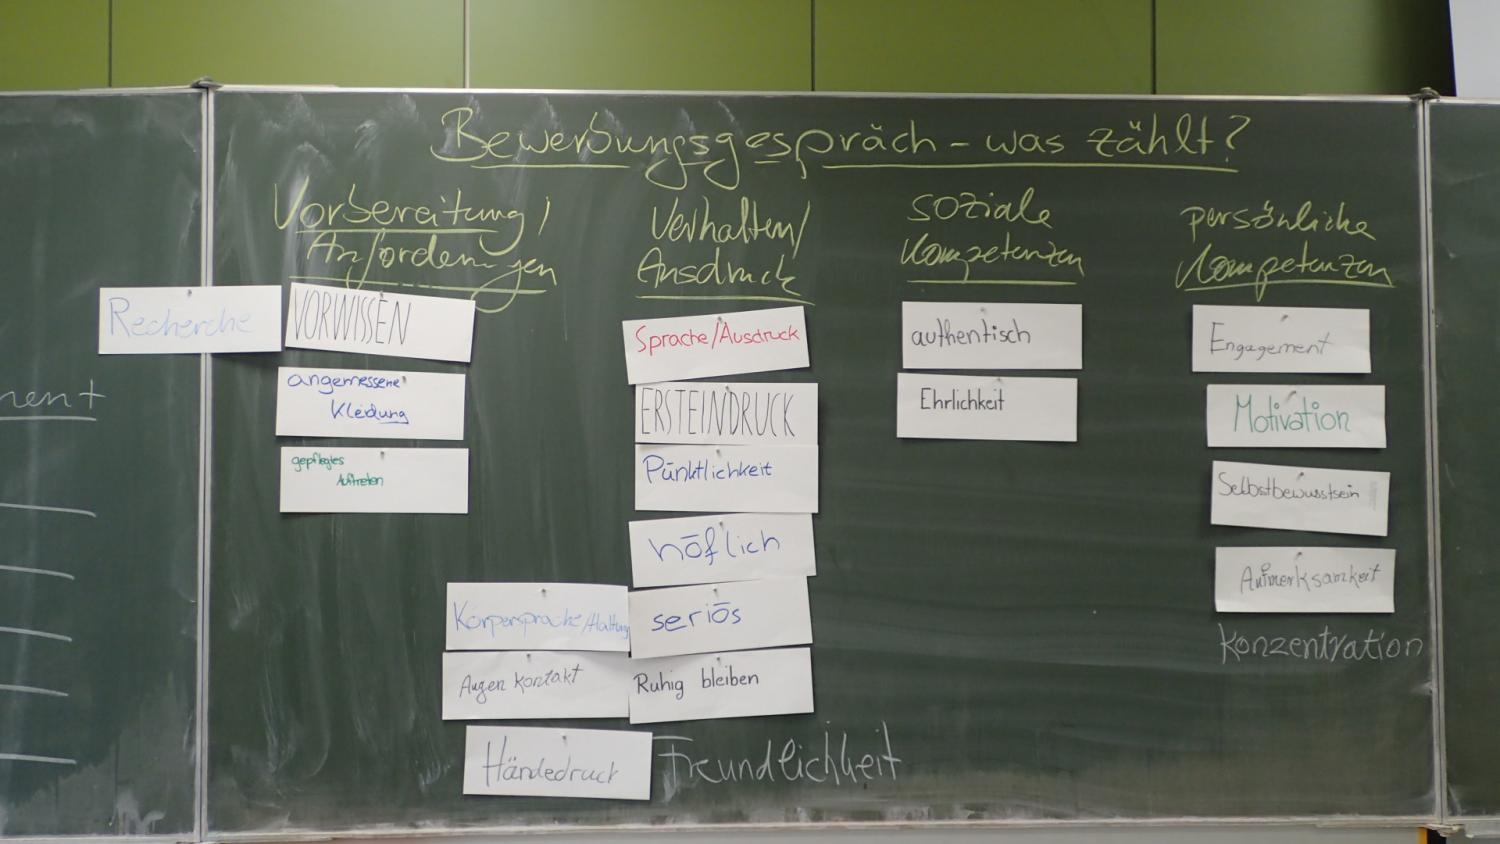 Bewerbungsgespräch – was zählt?
Vorbereitung /
Anforderungen
Recherche
VORWISSEN
angemessene
Kleidung
gepflegtes
Auftreten
Verhalten/
Ausdruck
Sprache/Ausdruck
ERSTEINDRUCK
Pünktlichkeit
höflich
Körpersprache/Haltung
seriös
Augen kontakt
Ruhig bleiben
Händedruck
Freundlichkeit
soziale
Kompetenzen
authentisch
Ehrlichkeit
persönliche
Kompetenzen
Engagement
Motivation
Selbstbewusstsein
Aufmerksamkeit
Konzentration